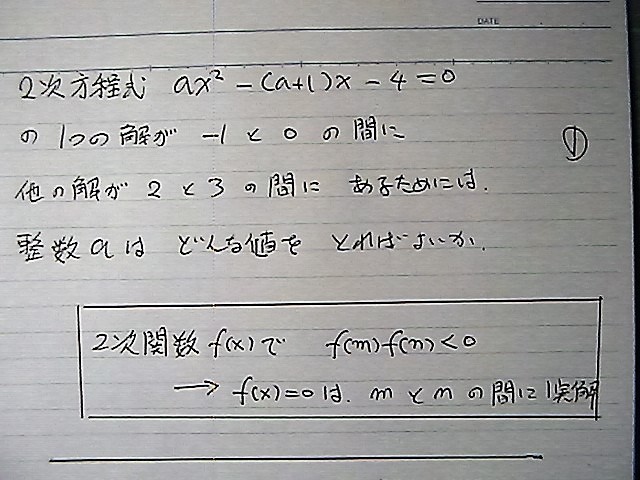 DATE
2次方程式 ax² - (a+1)x - 4 = 0
の 1つの解が -1 と 0 の間に
①
他の解が 2 と 3 の間に あるためには.
整数 a は どんな値を とればよいか.
2次関数 f(x) で f(m)f(n) < 0
→ f(x)=0 は. m と n の間に 1実解